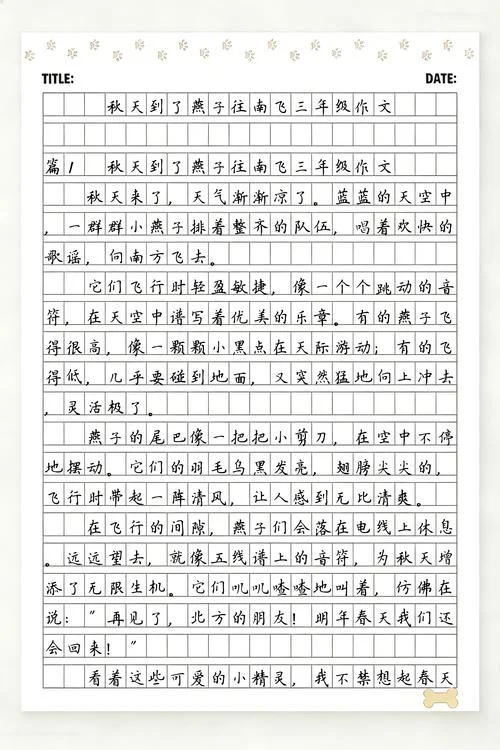 TITLE: DATE:
秋天到了燕子往南飞三年级作文
篇1 秋天到了燕子往南飞三年级作文
秋天来了，天气渐渐凉了。蓝蓝的天空中
，一群群小燕子排着整齐的队伍，唱着欢快的
歌谣，向南方飞去。
它们飞行时轻盈敏捷，像一个个跳动的音
符，在天空中谱写着优美的乐章。有的燕子飞
得很高，像一颗颗小黑点在天际游动；有的飞
得低，几乎要碰到地面，又突然猛地向上冲去
，灵活极了。
燕子的尾巴像一把把小剪刀，在空中不停
地摆动。它们的羽毛乌黑发亮，翅膀尖尖的，
飞行时带起一阵清风，让人感到无比清爽。
在飞行的间隙，燕子们会落在电线上休息
。远远望去，就像五线谱上的音符，为秋天增
添了无限生机。它们叽叽喳喳地叫着，仿佛在
说："再见了，北方的朋友！明年春天我们还
会回来！"
看着这些可爱的小精灵，我不禁想起春天